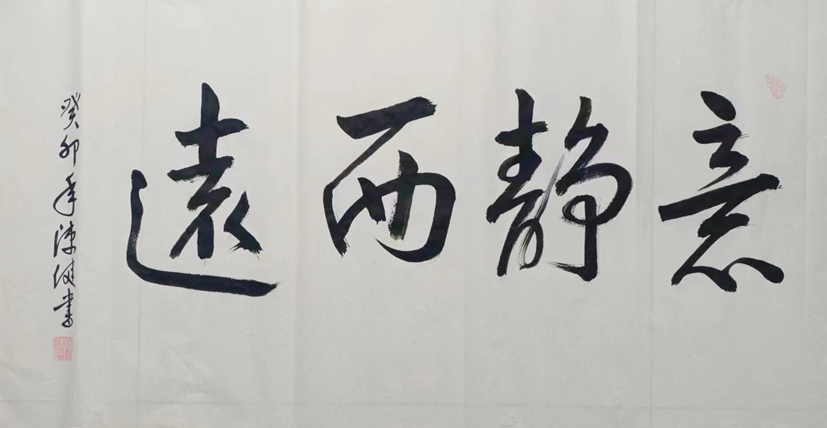 意静而遠
癸卯年陳健書